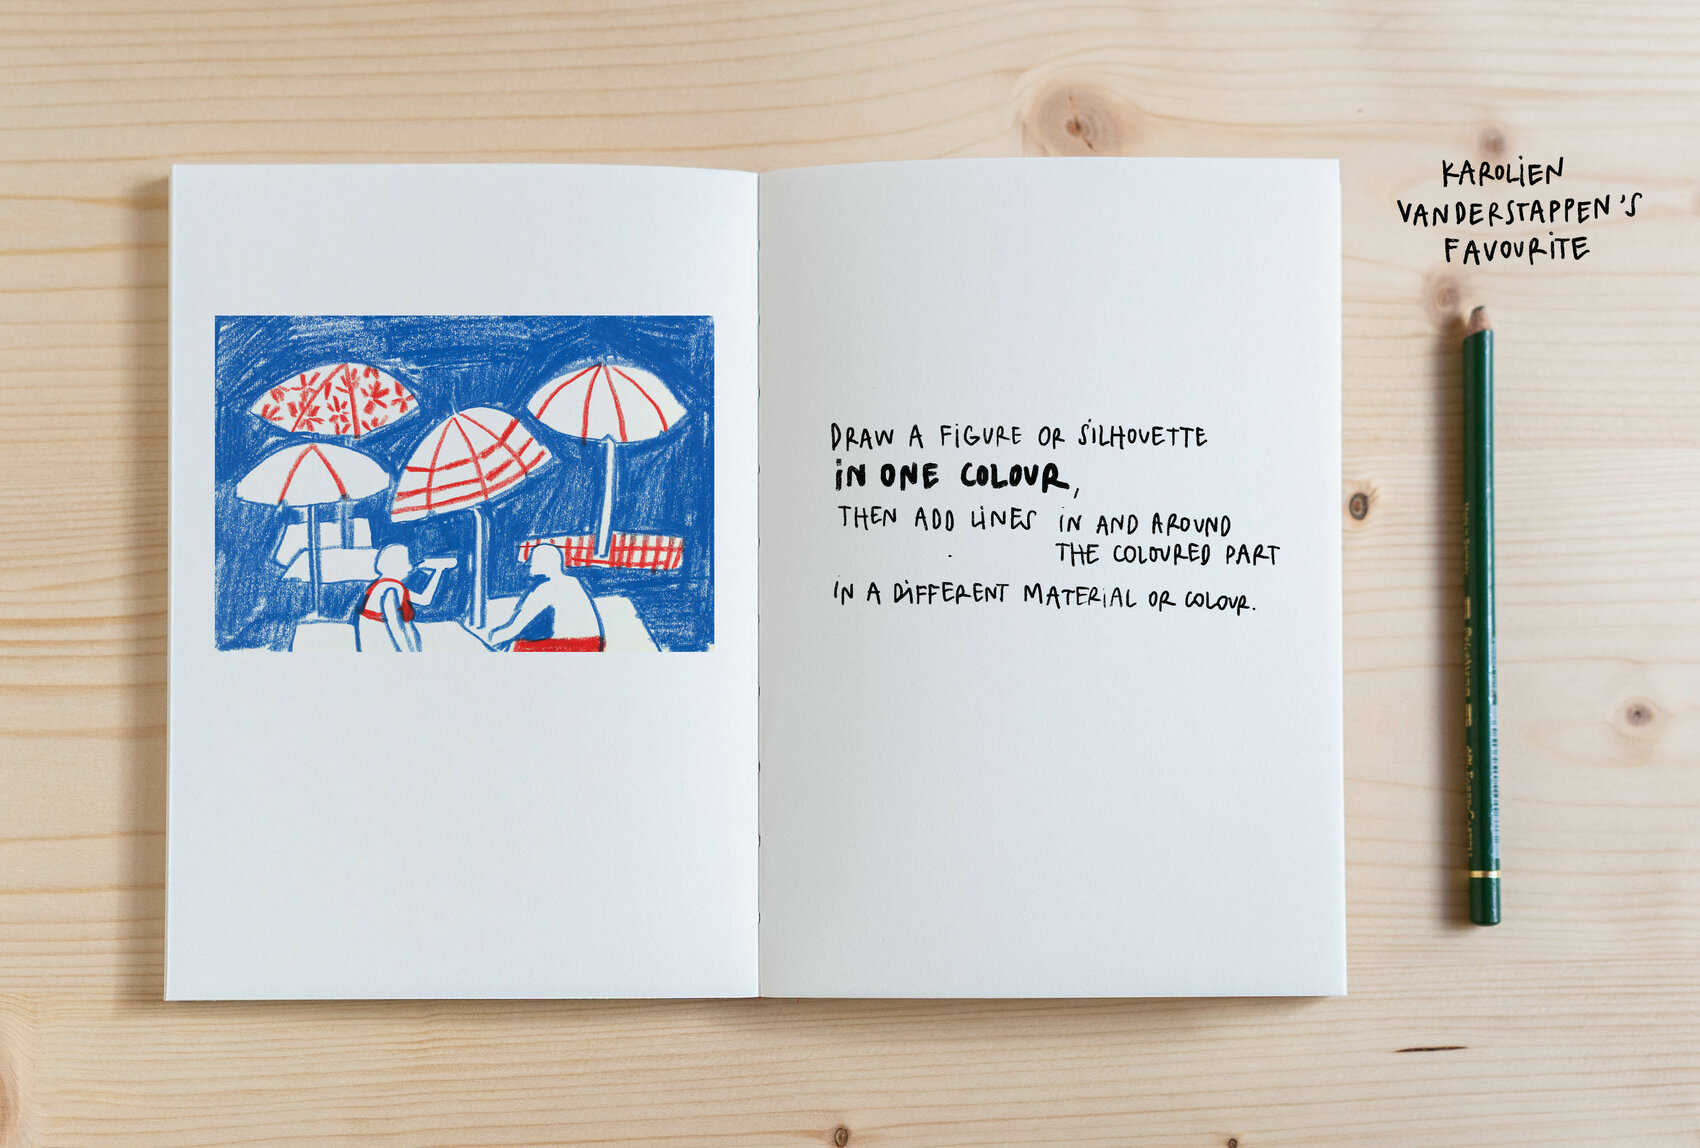 KAROLiEN
VANDERSTAPPEN'S
FAVOURITE
DRAW A FiGURE OR SiLHOUETTE
iN ONE COLOUR,
THEN ADD LiNES iN AND AROUND
THE COLOURED PART
iN A DiFFERENT MATERiAL OR COLOUR.